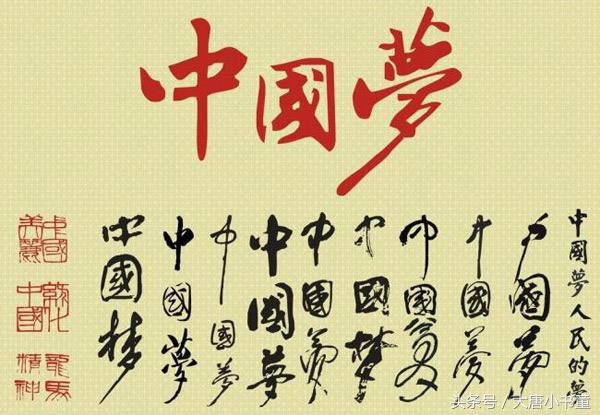 中國夢
中國夢人民的夢
中國夢
中國夢
中國夢
中國梦
中國夢
中國夢
中國夢
中國夢
中國梦
中國
美麗
中國
龍馬
精神
头条号 / 大唐小书童